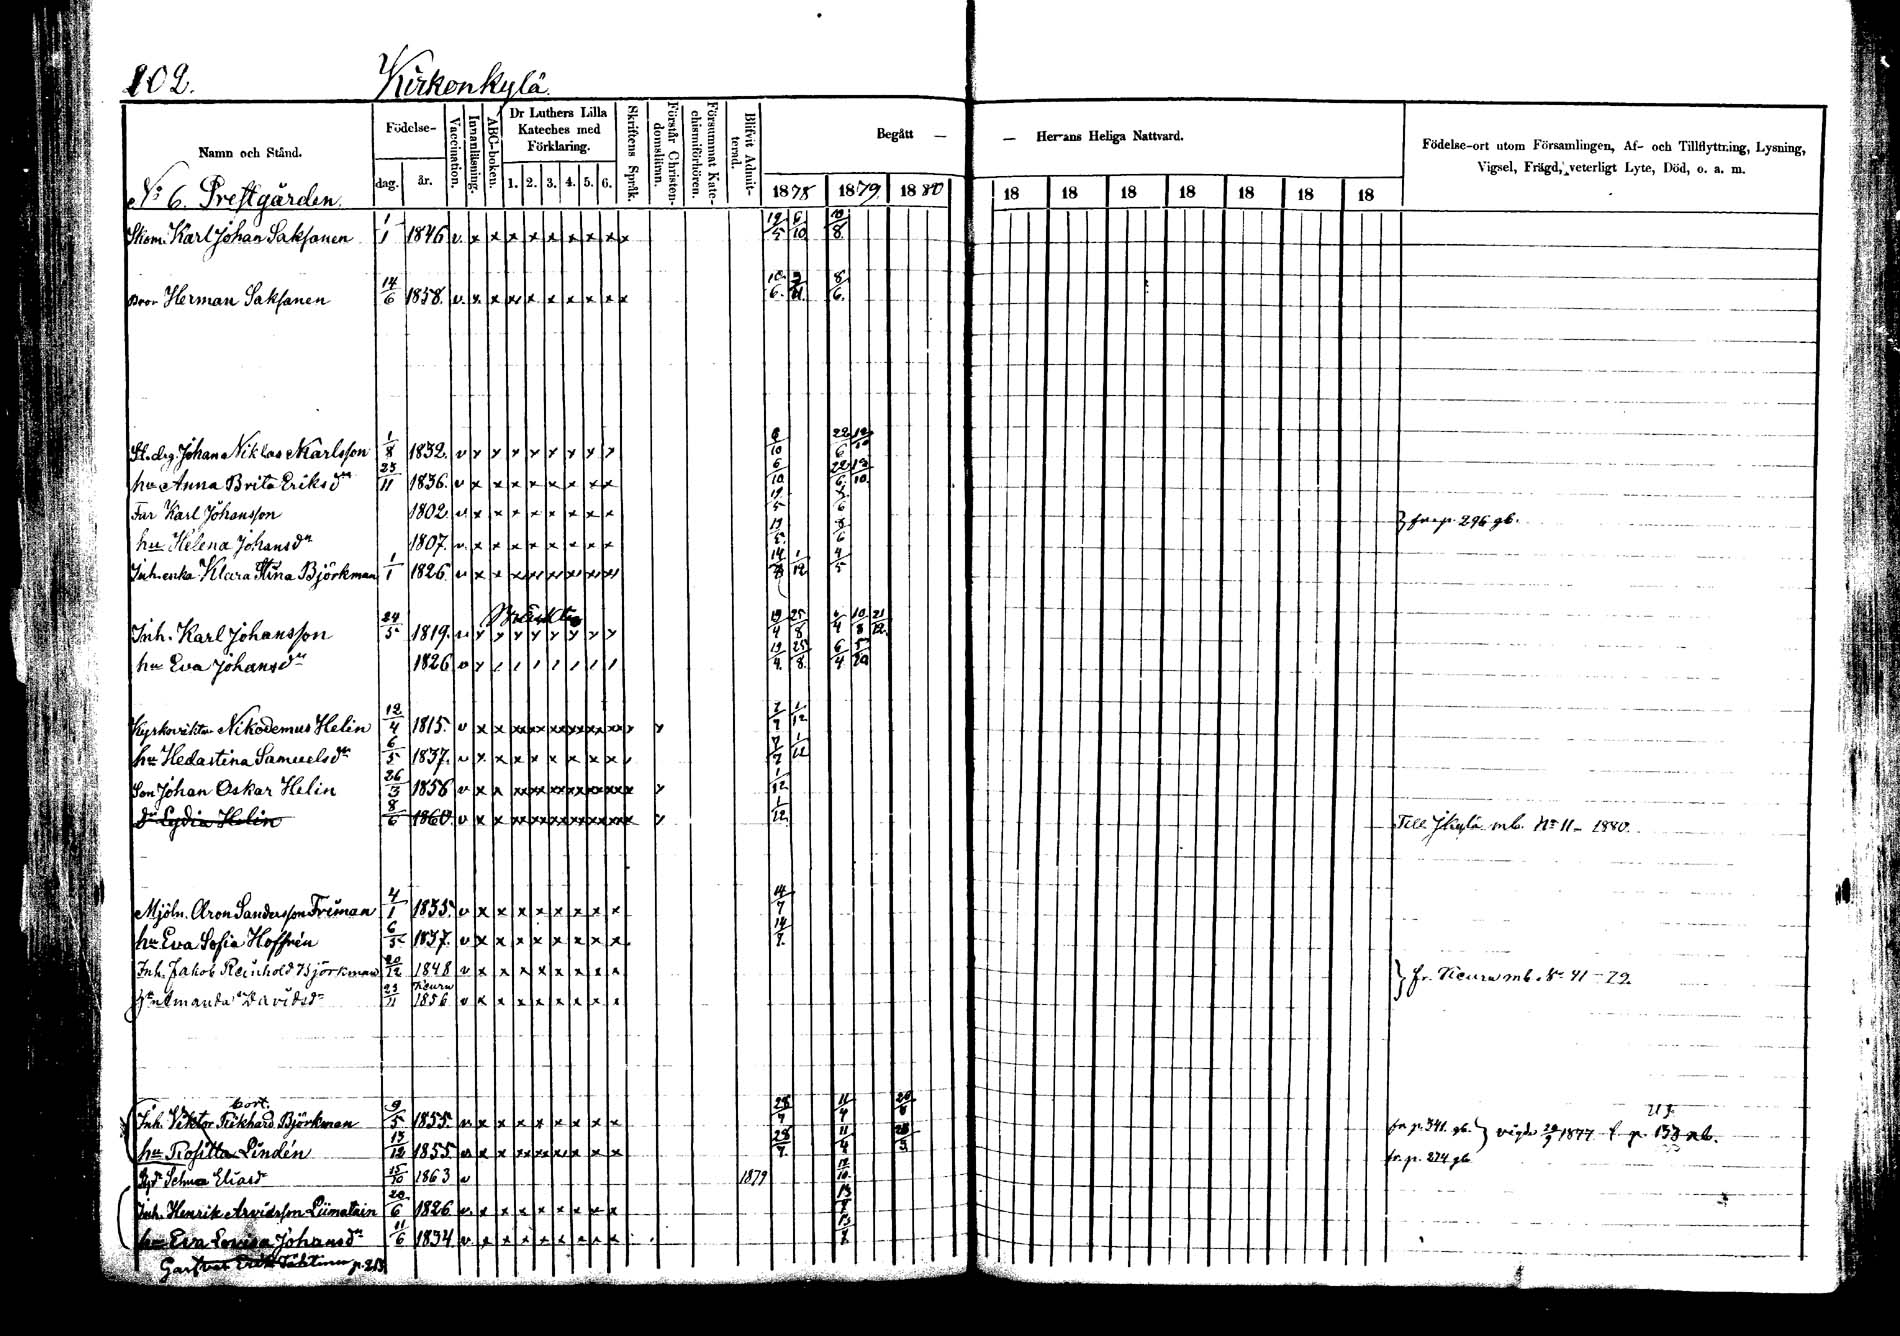 102. Kirkonkylä.
Namn och Stånd. Födelse- dag. år. Vaccination. Innanläsning. ABC-boken. Dr Luthers Lilla Kateches med Förklaring. 1. 2. 3. 4. 5. 6. Skriftens Språk. Förstår Christendomsläran. Försummat Katechismiförhören. Blifvit Admitterad. Begått — — Herrans Heliga Nattvard. Födelse-ort utom Församlingen, Af- och Tillflyttning, Lysning, Vigsel, Frägd, veterligt Lyte, Död, o. a. m.
1878 1879 1880 18 18 18 18 18 18 18
No 6. Prestgården.
Skom. Karl Johan Saksanen 1/1 1846 v x x x x x x x x x 19/5 6/10 10/8
Bror Herman Saksanen 14/6 1858. v. x x x x x x x x x 8/6.
St.drg. Johan Niklas Karlsson 1/8 1832. v x x x x x x x x 6/10 22/6 12/10
hu Anna Brita Eriksdr 23/11 1836. v x x x x x x x x 6/10 22/6 12/10.
Far Karl Johansson 1802. v x x x x x x x x 19/5 8/6 } fr. p. 296 gb.
hu Helena Johansdr 1807. v x x x x x x x x 19/5 8/6
Inh.enka Klara Stina Björkman 1/1 1826 v x x x x x x x x 1/12 4/5
Bräcklig
Inh. Karl Johansson 24/5 1819. v x x x x x x x x 19/4 25/8 6/4 10/8 21/12
hu Eva Johansdr 1826 v x / / / / / / / 19/4. 25/8. 6/4
Kyrkoväkta. Nikodemus Helin 12/4 1815. v x x xx xx xx xx xx xx x x 7/7 1/12
hu Hedastina Samuelsdr 6/5 1837. v x x x x x x x x x 7/7 1/12
Son Johan Oskar Helin 26/3 1856 v x x xx xx xx xx xx xx x x 1/12
dr Lydia Helin 8/6 1860. v x x xx xx xx xx xx xx x x 1/12 Till Jkylä mb. No 11 - 1880.
Mjöln. Aron Sandersson Friman 4/1 1835. v x x x x x x x x 14/7
hu Eva Sofia Hoffrén 6/5 1837. v x x x x x x x x 14/7.
Inh. Jakob Reinhold Björkman 20/12 1848 v x x x x x x x x } fr. Kiuru mb. No 41 - 79.
hu Amanda Davidsdr 23/11 1856 v x x x x x x x x
bort.
Inh. Viktor Rikhard Björkman 9/5 1855. v x x x x x x x x 28/7 11/4 fr. p. 341. gb. } vigde 1877 f. p. 153 nb.
hu Rositta Lindén 13/12 1855. v x x xx xx xx x x x 28/7. 11/4 fr. p. 274 gb
Eliasdr 15/10 1863 v 1879 12/10
Inh. Henrik Arvidsson Liimatain 20/6 1826 v x x x x x x x x 13/8
hu Eva Lovisa Johansdr 11/6 1834 v x x x x x x x x 13/8.
Erik p. 213.